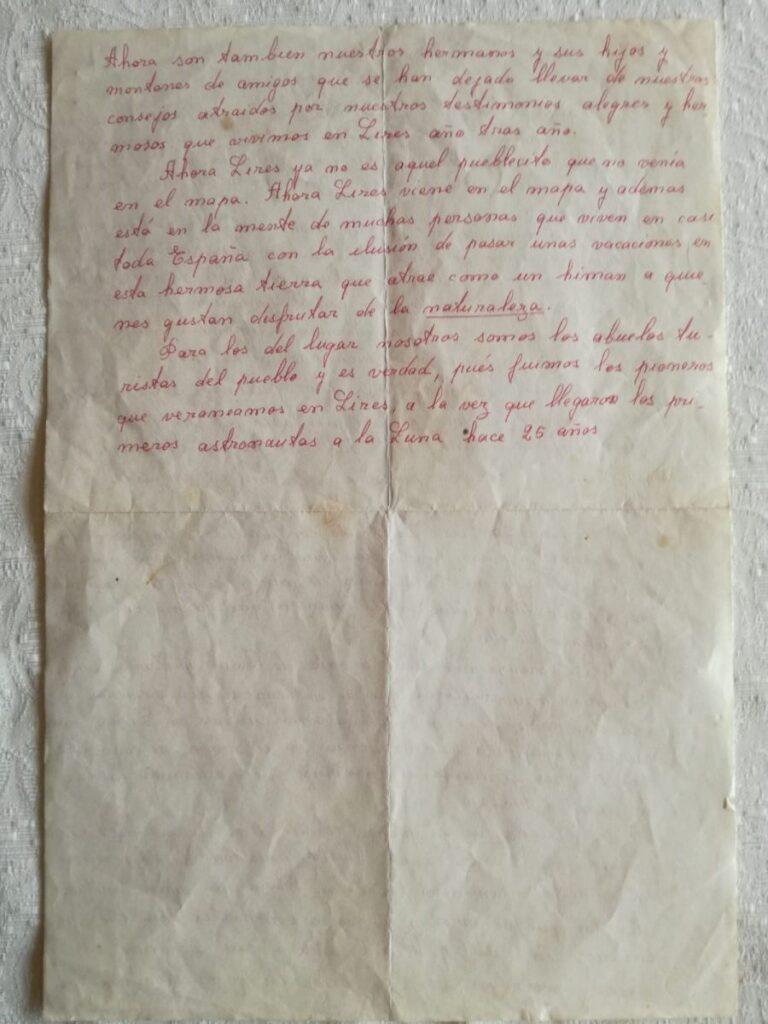 Ahora son tambien nuestros hermanos y sus hijos y
montones de amigos que se han dejado llevar de nuestros
consejos atraidos por nuestros testimonios alegres y her
mosos que vivimos en Lires año tras año.
Ahora Lires ya no es aquel pueblecito que no venia
en el mapa. Ahora Lires viene en el mapa y ademas
está en la mente de muchas personas que viven en casi
toda España con la ilusión de pasar unas vacaciones en
esta hermosa tierra que atrae como un himan a quie
nes gustan disfrutar de la naturaleza.
Para los del lugar nosotros somos los abuelos tu-
ristas del pueblo y es verdad, pués fuimos los pioneros
que veraneamos en Lires, a la vez que llegaron los pri-
meros astronautas a la Luna hace 25 años